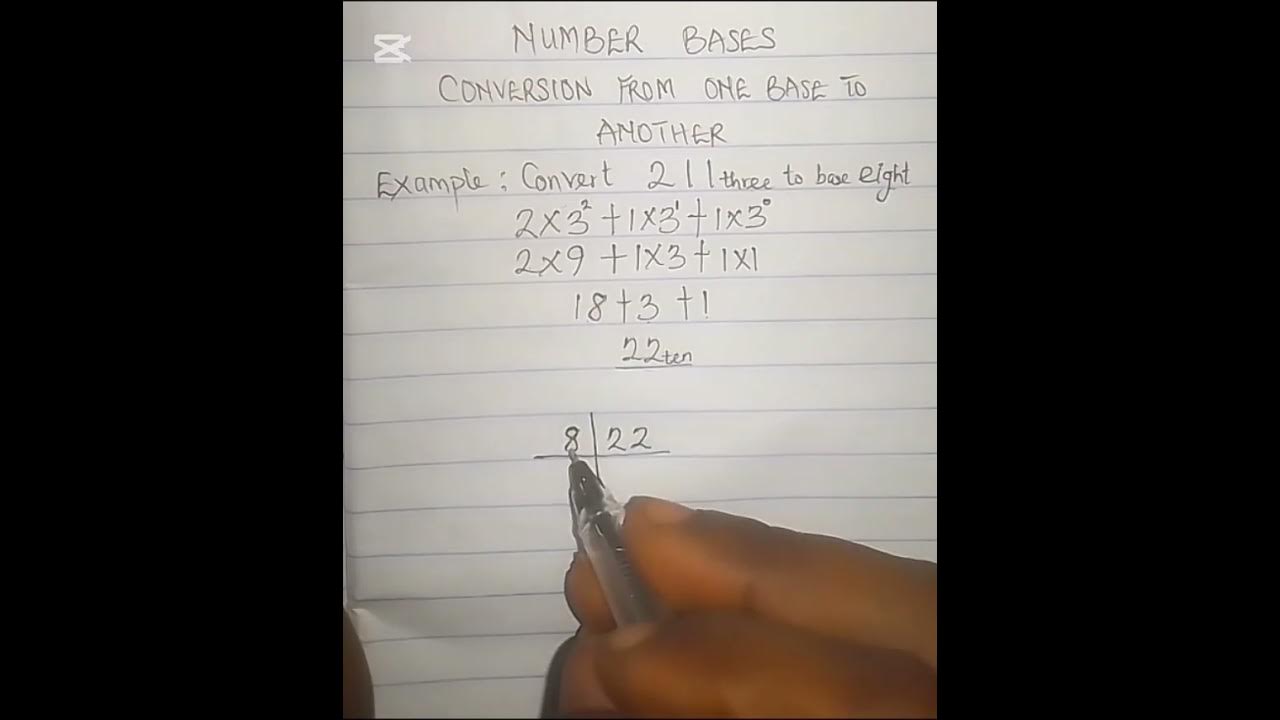 NUMBER BASES
CONVERSION FROM ONE BASE TO
ANOTHER
Example: Convert 211three to base eight
2×3²+1×3¹+1×3⁰
2×9+1×3+1×1
18+3+1
22ten
8|22